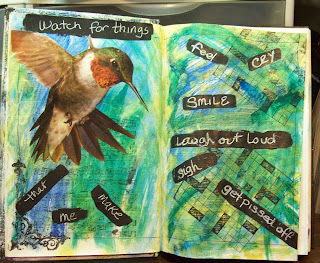 Watch for things
that
make
me
feel
cry
SMILE
Laugh out loud
sigh
get pissed off